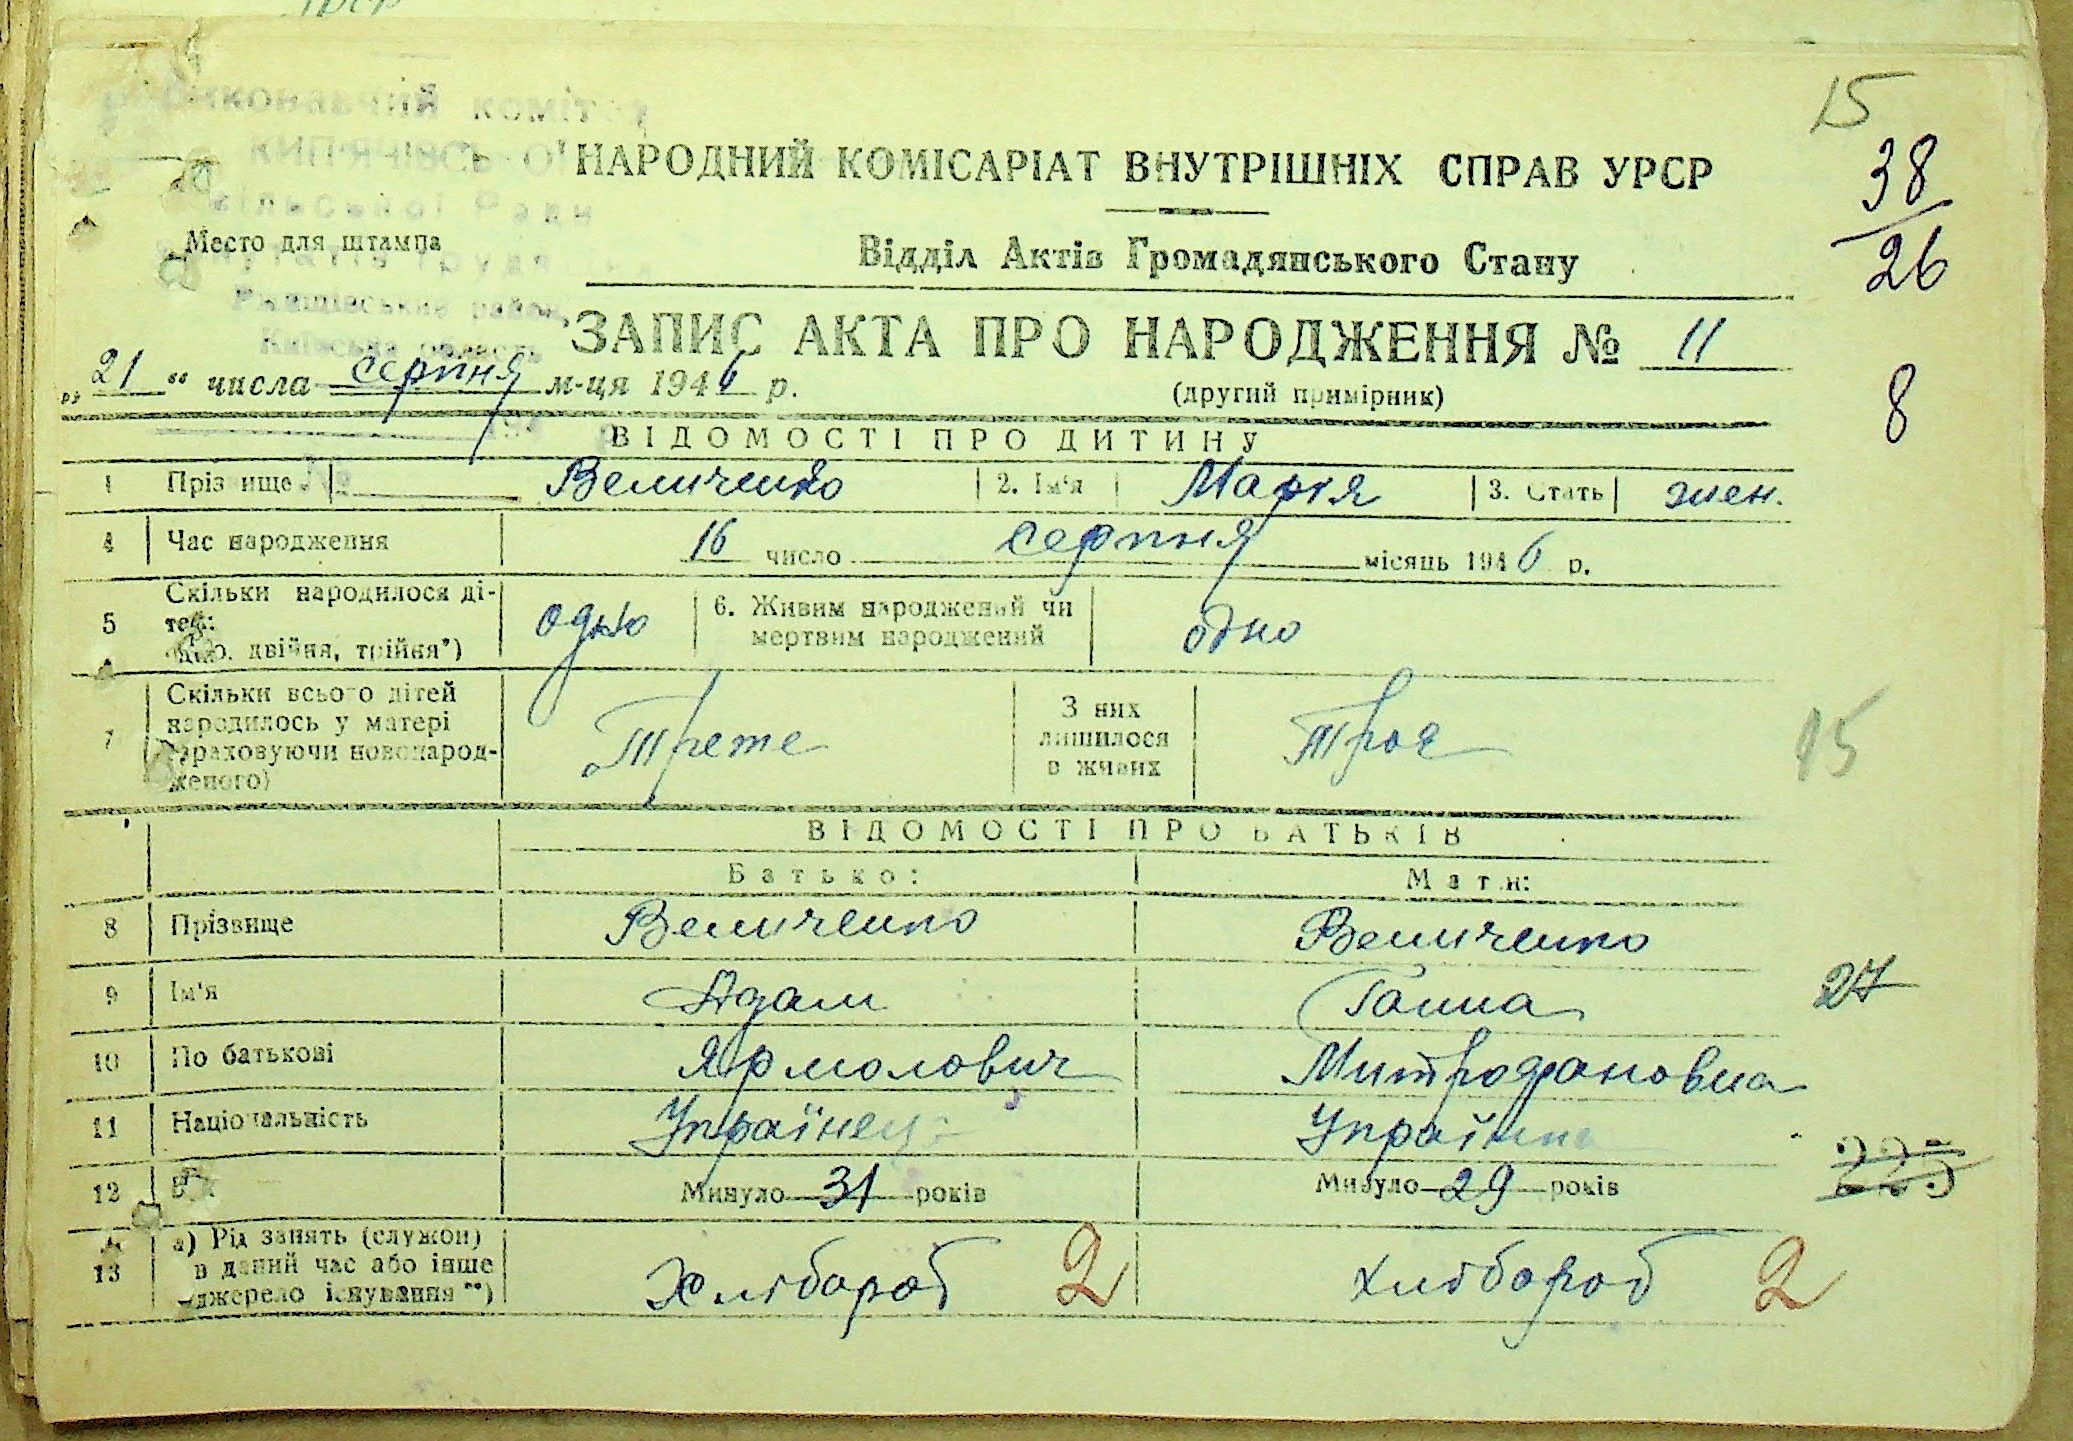 15
Виконавчий комітет
НАРОДНИЙ КОМІСАРІАТ ВНУТРІШНІХ СПРАВ УРСР
38
26
Место для штампа
Відділ Актів Громадянського Стану
ЗАПИС АКТА ПРО НАРОДЖЕННЯ № 11
„21“ числа серпня м-ця 1946 р.
(другий примірник)
8
ВІДОМОСТІ ПРО ДИТИНУ
1 Прізвище Величенко 2. Ім'я Марія 3. Стать жен.
4 Час народження 16 число серпня місяць 1946 р.
5 Скільки народилося ді-
тей:
двійня, трійня") одно 6. Живим народжений чи
мертвим народжений одно
7 Скільки всього дітей
народилось у матері
зраховуючи новонарод-
женого) Трете З них
лишилося
в живих Троє
15
ВІДОМОСТІ ПРО БАТЬКІВ
Батько: Мати:
8 Прізвище Величенко Величенко
9 Ім'я Адам Ганна 27
10 По батькові Ярмолович Митрофановна
11 Національність Українец Українка
12 Минуло 31 років Минуло 29 років
13 а) Рід занять (служби)
в даний час або інше
джерело існування**) Хлібороб 2 хлібороб 2